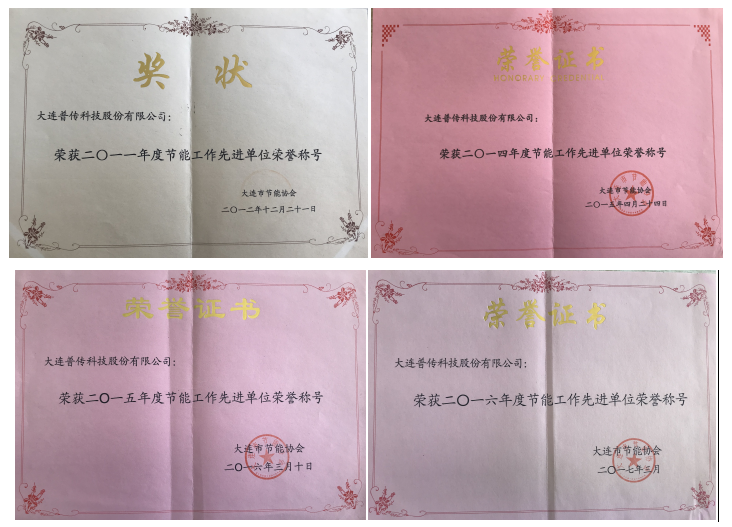 奖 状
大连普传科技股份有限公司:
荣获二〇一一年度节能工作先进单位荣誉称号
大连市节能协会
二〇一二年十二月二十一日
荣誉证书
HONORARY CREDENTIAL
大连普传科技股份有限公司:
荣获二〇一四年度节能工作先进单位荣誉称号
大连市节能协会
二〇一五年四月二十四日
荣誉证书
大连普传科技股份有限公司:
荣获二〇一五年度节能工作先进单位荣誉称号
大连市节能协会
二〇一六年三月十日
荣誉证书
大连普传科技股份有限公司:
荣获二〇一六年度节能工作先进单位荣誉称号
大连市节能协会
二〇一七年三月